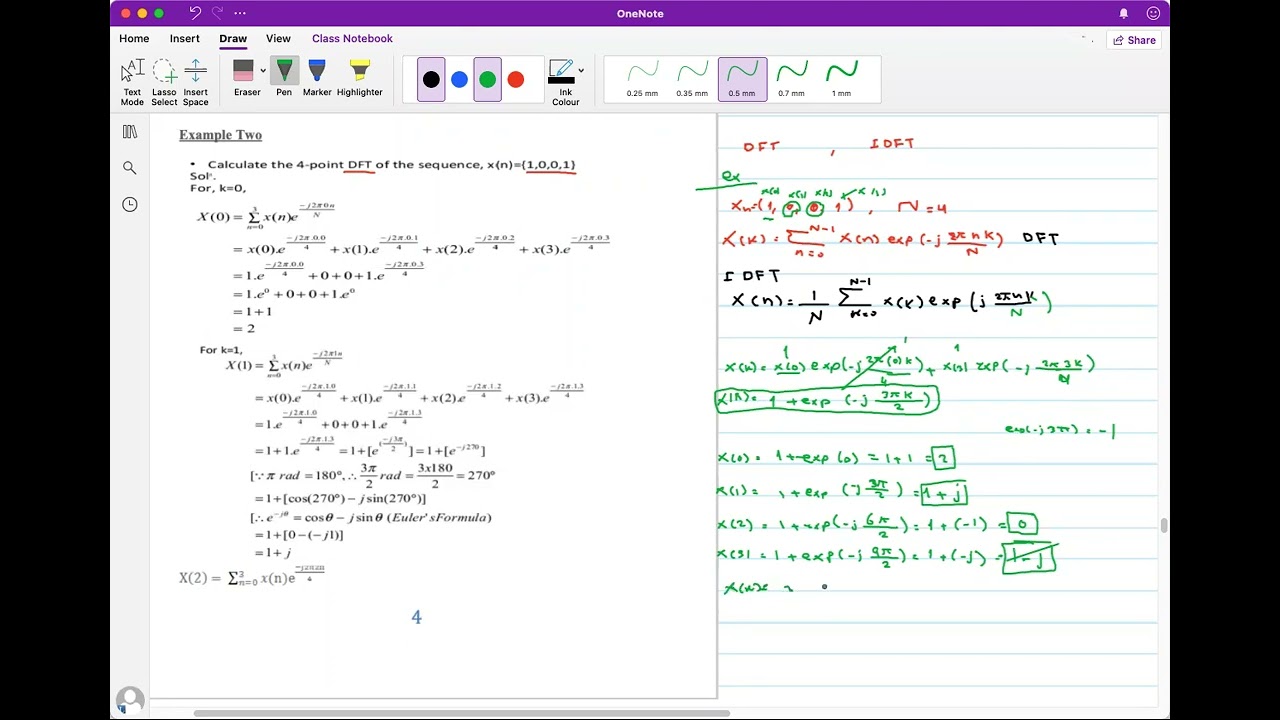 OneNote
Home Insert Draw View Class Notebook
Share
Text Mode
Lasso Select
Insert Space
Eraser
Pen
Marker
Highlighter
Ink Colour
0.25 mm 0.35 mm 0.5 mm 0.7 mm 1 mm
Example Two
• Calculate the 4-point DFT of the sequence, x(n)={1,0,0,1}
Solⁿ.
For, k=0,
X(0) = Σ_{n=0}^{3} x(n)e^{-j2π0n/N}
= x(0).e^{-j2π.0.0/4} + x(1).e^{-j2π.0.1/4} + x(2).e^{-j2π.0.2/4} + x(3).e^{-j2π.0.3/4}
= 1.e^{-j2π.0.0/4} + 0 + 0 + 1.e^{-j2π.0.3/4}
= 1.e⁰ + 0 + 0 + 1.e⁰
= 1 + 1
= 2
For k=1,
X(1) = Σ_{n=0}^{3} x(n)e^{-j2π1n/N}
= x(0).e^{-j2π.1.0/4} + x(1).e^{-j2π.1.1/4} + x(2).e^{-j2π.1.2/4} + x(3).e^{-j2π.1.3/4}
= 1.e^{-j2π.1.0/4} + 0 + 0 + 1.e^{-j2π.1.3/4}
= 1 + 1.e^{-j2π.1.3/4} = 1 + [e^{(-j3π/2)}] = 1 + [e^{-j270}]
[∵ π rad = 180°, ∴ 3π/2 rad = 3x180/2 = 270°
= 1 + [cos(270°) − j sin(270°)]
[∴ e^{-jθ} = cosθ − j sinθ (Euler'sFormula)
= 1 + [0 − (−j1)]
= 1 + j
X(2) = Σ_{n=0}^{3} x(n)e^{-j2π2n/4}
4
DFT , IDFT
ex
x(1) x(2)
, N = 4
X(k) = Σ_{n=0}^{N-1} x(n) exp(-j 2πnk/N) DFT
IDFT
x(n) = 1/N Σ_{k=0}^{N-1} x(k) exp(j 2πnk/N)
1 1 1
x(k) = x(0) exp(-j 2π(0)k/4) + x(3) exp(-j 2π3k/4)
x(k) = 1 + exp(-j 3πk/2)
exp(-j3π) = -1
x(0) = 1 + exp(0) = 1+1 = 2
x(1) = 1 + exp(-j 3π/2) = 1+j
x(2) = 1 + exp(-j 6π/2) = 1+(-1) = 0
x(3) = 1 + exp(-j 9π/2) = 1+(-j) = 1-j